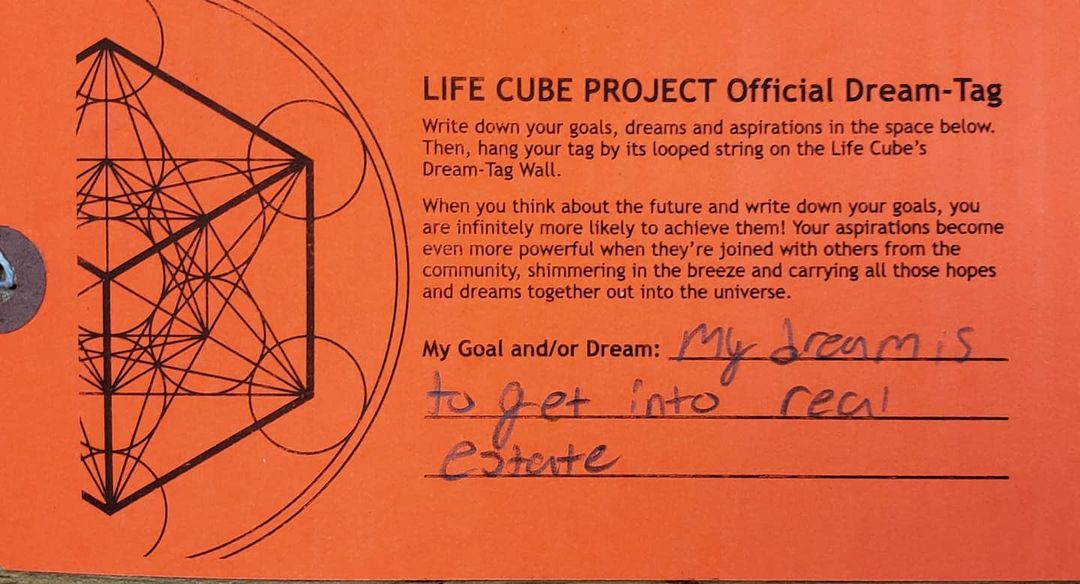 LIFE CUBE PROJECT Official Dream-Tag
Write down your goals, dreams and aspirations in the space below.
Then, hang your tag by its looped string on the Life Cube's
Dream-Tag Wall.
When you think about the future and write down your goals, you
are infinitely more likely to achieve them! Your aspirations become
even more powerful when they're joined with others from the
community, shimmering in the breeze and carrying all those hopes
and dreams together out into the universe.
My Goal and/or Dream: My dream is
to get into real
estate